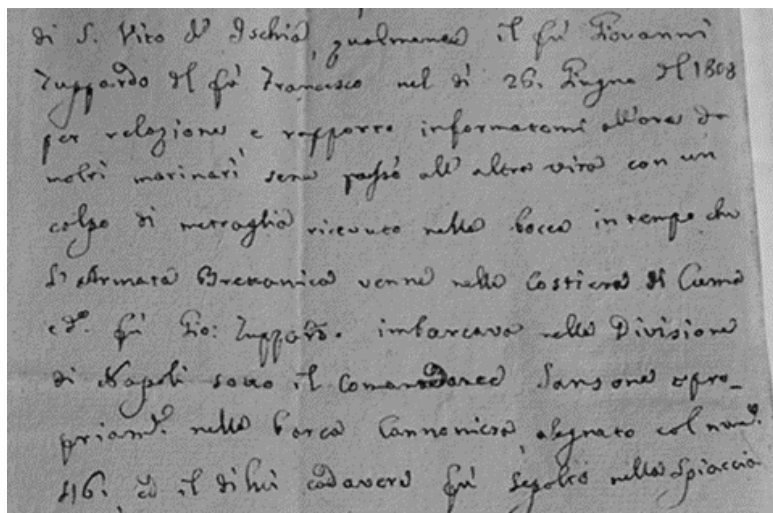 di S. Vito d'Ischia, qualmente il fù Giovanni
Zuppardo del fù Francesco nel dì 26. Giugno del 1808
per relazione e rapporto informatomi all'ora da
molti marinari sene passò all'altra vita con un
colpo di metraglia ricevuto nella bocca in tempo che
l'Armata Brettanica venne nella Costiera di Cuma
e d.º fù Gio: Zuppardo. imbarcava nella Divisione
di Napoli sotto il Comandante Sansone e pro_
priam.e nella barca Cannoniera, segnato col num.º
46. ed il di lui cadavere fù sepolto nella Spiaccia